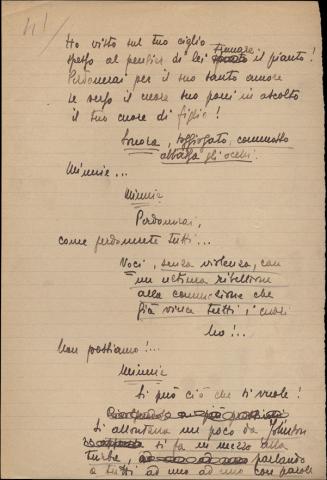 41)
Ho visto sul tuo ciglio tremare
spesso al pensier di lei il pianto!
Perdonerai per il suo santo amore
se verso il cuore suo poni in ascolto
il tuo cuore di figlio!
Sonora, soggiogato, commosso
abbassa gli occhi.
Minnie...
Minnie
Perdonerai,
come perdonerete tutti...
Voci, senza violenza, con
un'ultima ribellione
alla commozione che
già vince tutti i cuori
No!..
Non possiamo!...
Minnie
Si può ciò che si vuole!
Si allontana un poco da Johnson
si fa in mezzo alla
turba, parlando
a tutti ad uno ad uno con parole